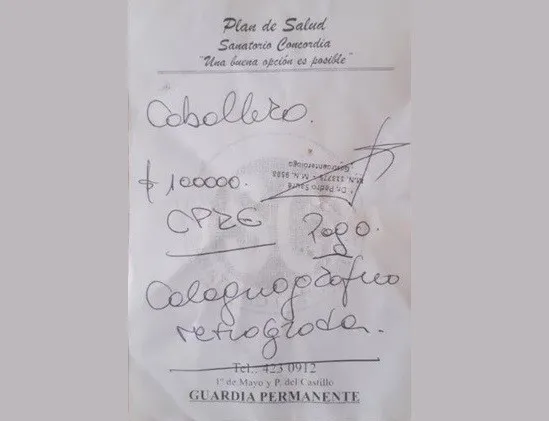 Plan de Salud
Sanatorio Concordia
"Una buena opción es posible"
Caballero.
$ 100000.
Dr. Pedro Sauré
Gastroenterólogo
CPRE Pago.
Colagnografico
retrograda.
Tel.: 423 0912
1º de Mayo y P. del Castillo
GUARDIA PERMANENTE